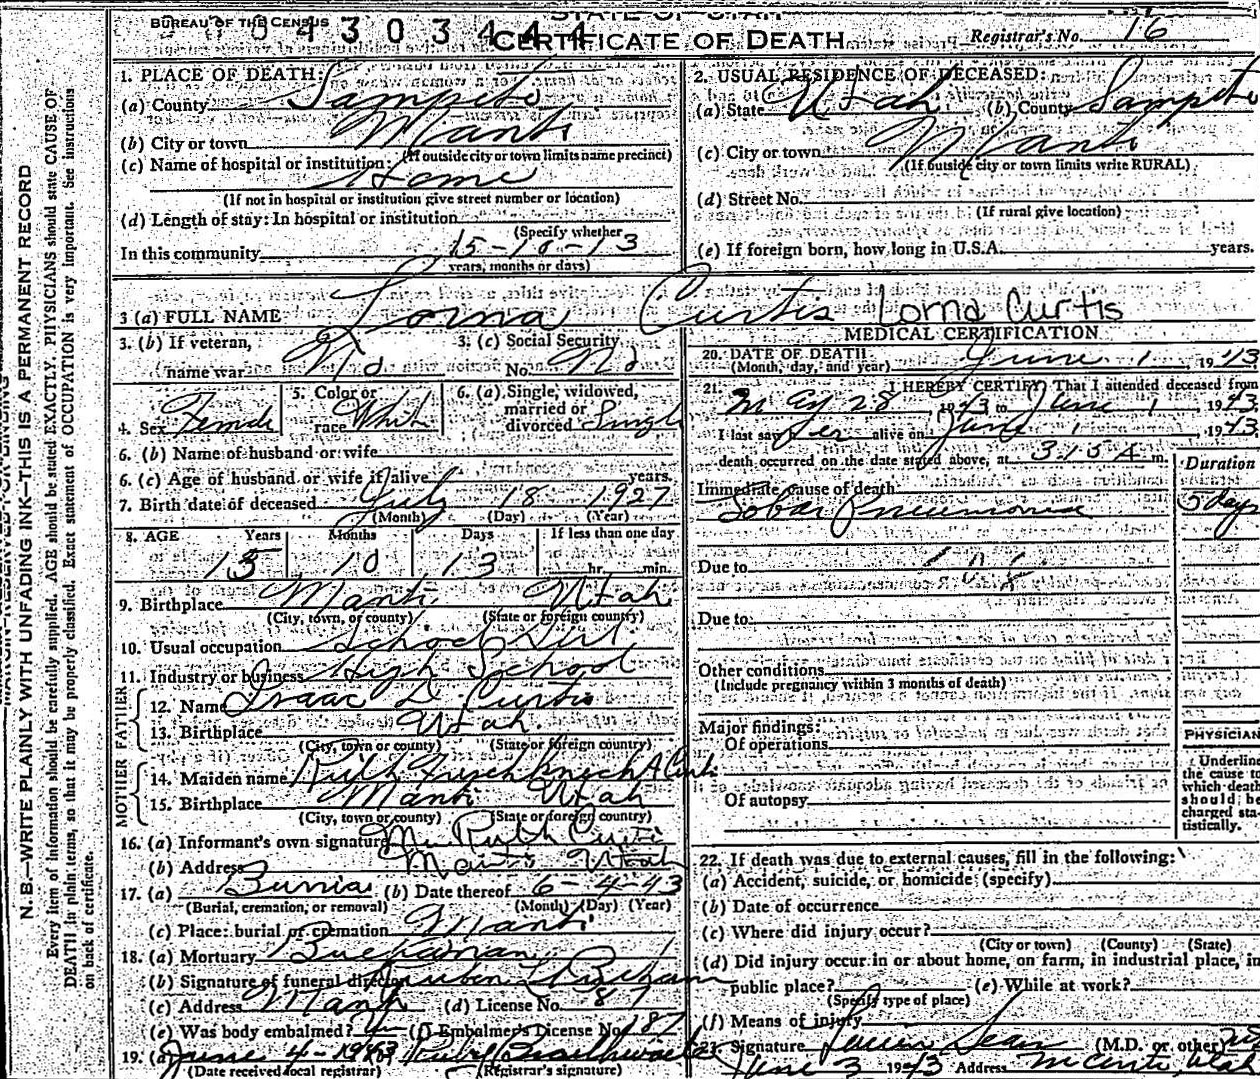 STATE OF UTAH
BUREAU OF THE CENSUS
CERTIFICATE OF DEATH
Registrar's No. 16
N. B.—WRITE PLAINLY WITH UNFADING INK—THIS IS A PERMANENT RECORD
Every item of information should be carefully supplied. AGE should be stated EXACTLY. PHYSICIANS should state CAUSE OF
DEATH in plain terms, so that it may be properly classified. Exact statement of OCCUPATION is very important. See instructions
on back of certificate.
1. PLACE OF DEATH:
(a) County Sanpete
(b) City or town Manti
(If outside city or town limits name precinct)
(c) Name of hospital or institution:
Home
(If not in hospital or institution give street number or location)
(d) Length of stay: In hospital or institution
(Specify whether
In this community 15-10-13
years, months or days)
2. USUAL RESIDENCE OF DECEASED:
(a) State Utah (b) County Sanpete
(c) City or town Manti
(If outside city or town limits write RURAL)
(d) Street No.
(If rural give location)
(e) If foreign born, how long in U.S.A. years.
3 (a) FULL NAME Lorna Curtis Lorna Curtis
3. (b) If veteran, name war No
3. (c) Social Security No. No
4. Sex Female
5. Color or race White
6. (a) Single, widowed, married or divorced Single
6. (b) Name of husband or wife
6. (c) Age of husband or wife if alive years.
7. Birth date of deceased July 18 1927
(Month) (Day) (Year)
8. AGE Years Months Days If less than one day
15 10 13 hr. min.
9. Birthplace Manti Utah
(City, town, or county) (State or foreign country)
10. Usual occupation School Girl
11. Industry or business High School
FATHER
12. Name Isaac D. Curtis
13. Birthplace Utah
(City, town or county) (State or foreign country)
MOTHER
14. Maiden name Ruth
15. Birthplace Manti Utah
(City, town or county) (State or foreign country)
16. (a) Informant's own signature Mrs Ruth Curtis
(b) Address Manti Utah
17. (a) Burial (b) Date thereof 6-4-43
(Burial, cremation, or removal) (Month) (Day) (Year)
(c) Place: burial or cremation Manti
18. (a) Mortuary Buchanan
(b) Signature of funeral director
(c) Address Manti (d) License No. 87
(e) Was body embalmed? (f) Embalmer's License No. 187
19. (a) June 4-1943 Ruby Braithwaite
(Date received local registrar) (Registrar's signature)
MEDICAL CERTIFICATION
20. DATE OF DEATH
(Month, day, and year) June 1, 1943
21. I HEREBY CERTIFY, That I attended deceased from
May 28, 1943 to June 1, 1943
I last saw her alive on June 1, 1943
death occurred on the date stated above, at 3:15 A m.
Duration
Immediate cause of death
Lobar Pneumonia 5 days
Due to 108
Due to
Other conditions
(Include pregnancy within 3 months of death)
Major findings:
Of operations
Of autopsy
PHYSICIAN
Underline
the cause to
which death
should be
charged sta-
tistically.
22. If death was due to external causes, fill in the following:
(a) Accident, suicide, or homicide (specify)
(b) Date of occurrence
(c) Where did injury occur?
(City or town) (County) (State)
(d) Did injury occur in or about home, on farm, in industrial place, in
public place? (e) While at work?
(Specify type of place)
(f) Means of injury
23. Signature (M.D. or other)
June 3 1943 Address